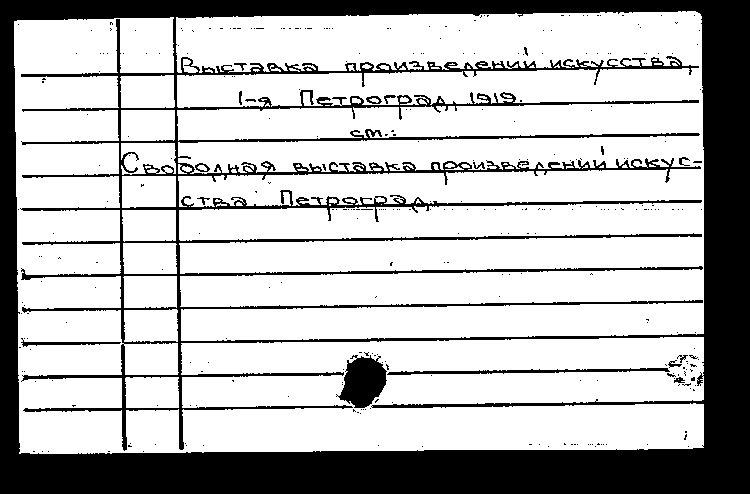 Выставка произведений искусства,
1-я Петроград, 1919.
см.:
Свободная выставка произведений искус-
ства. Петроград.